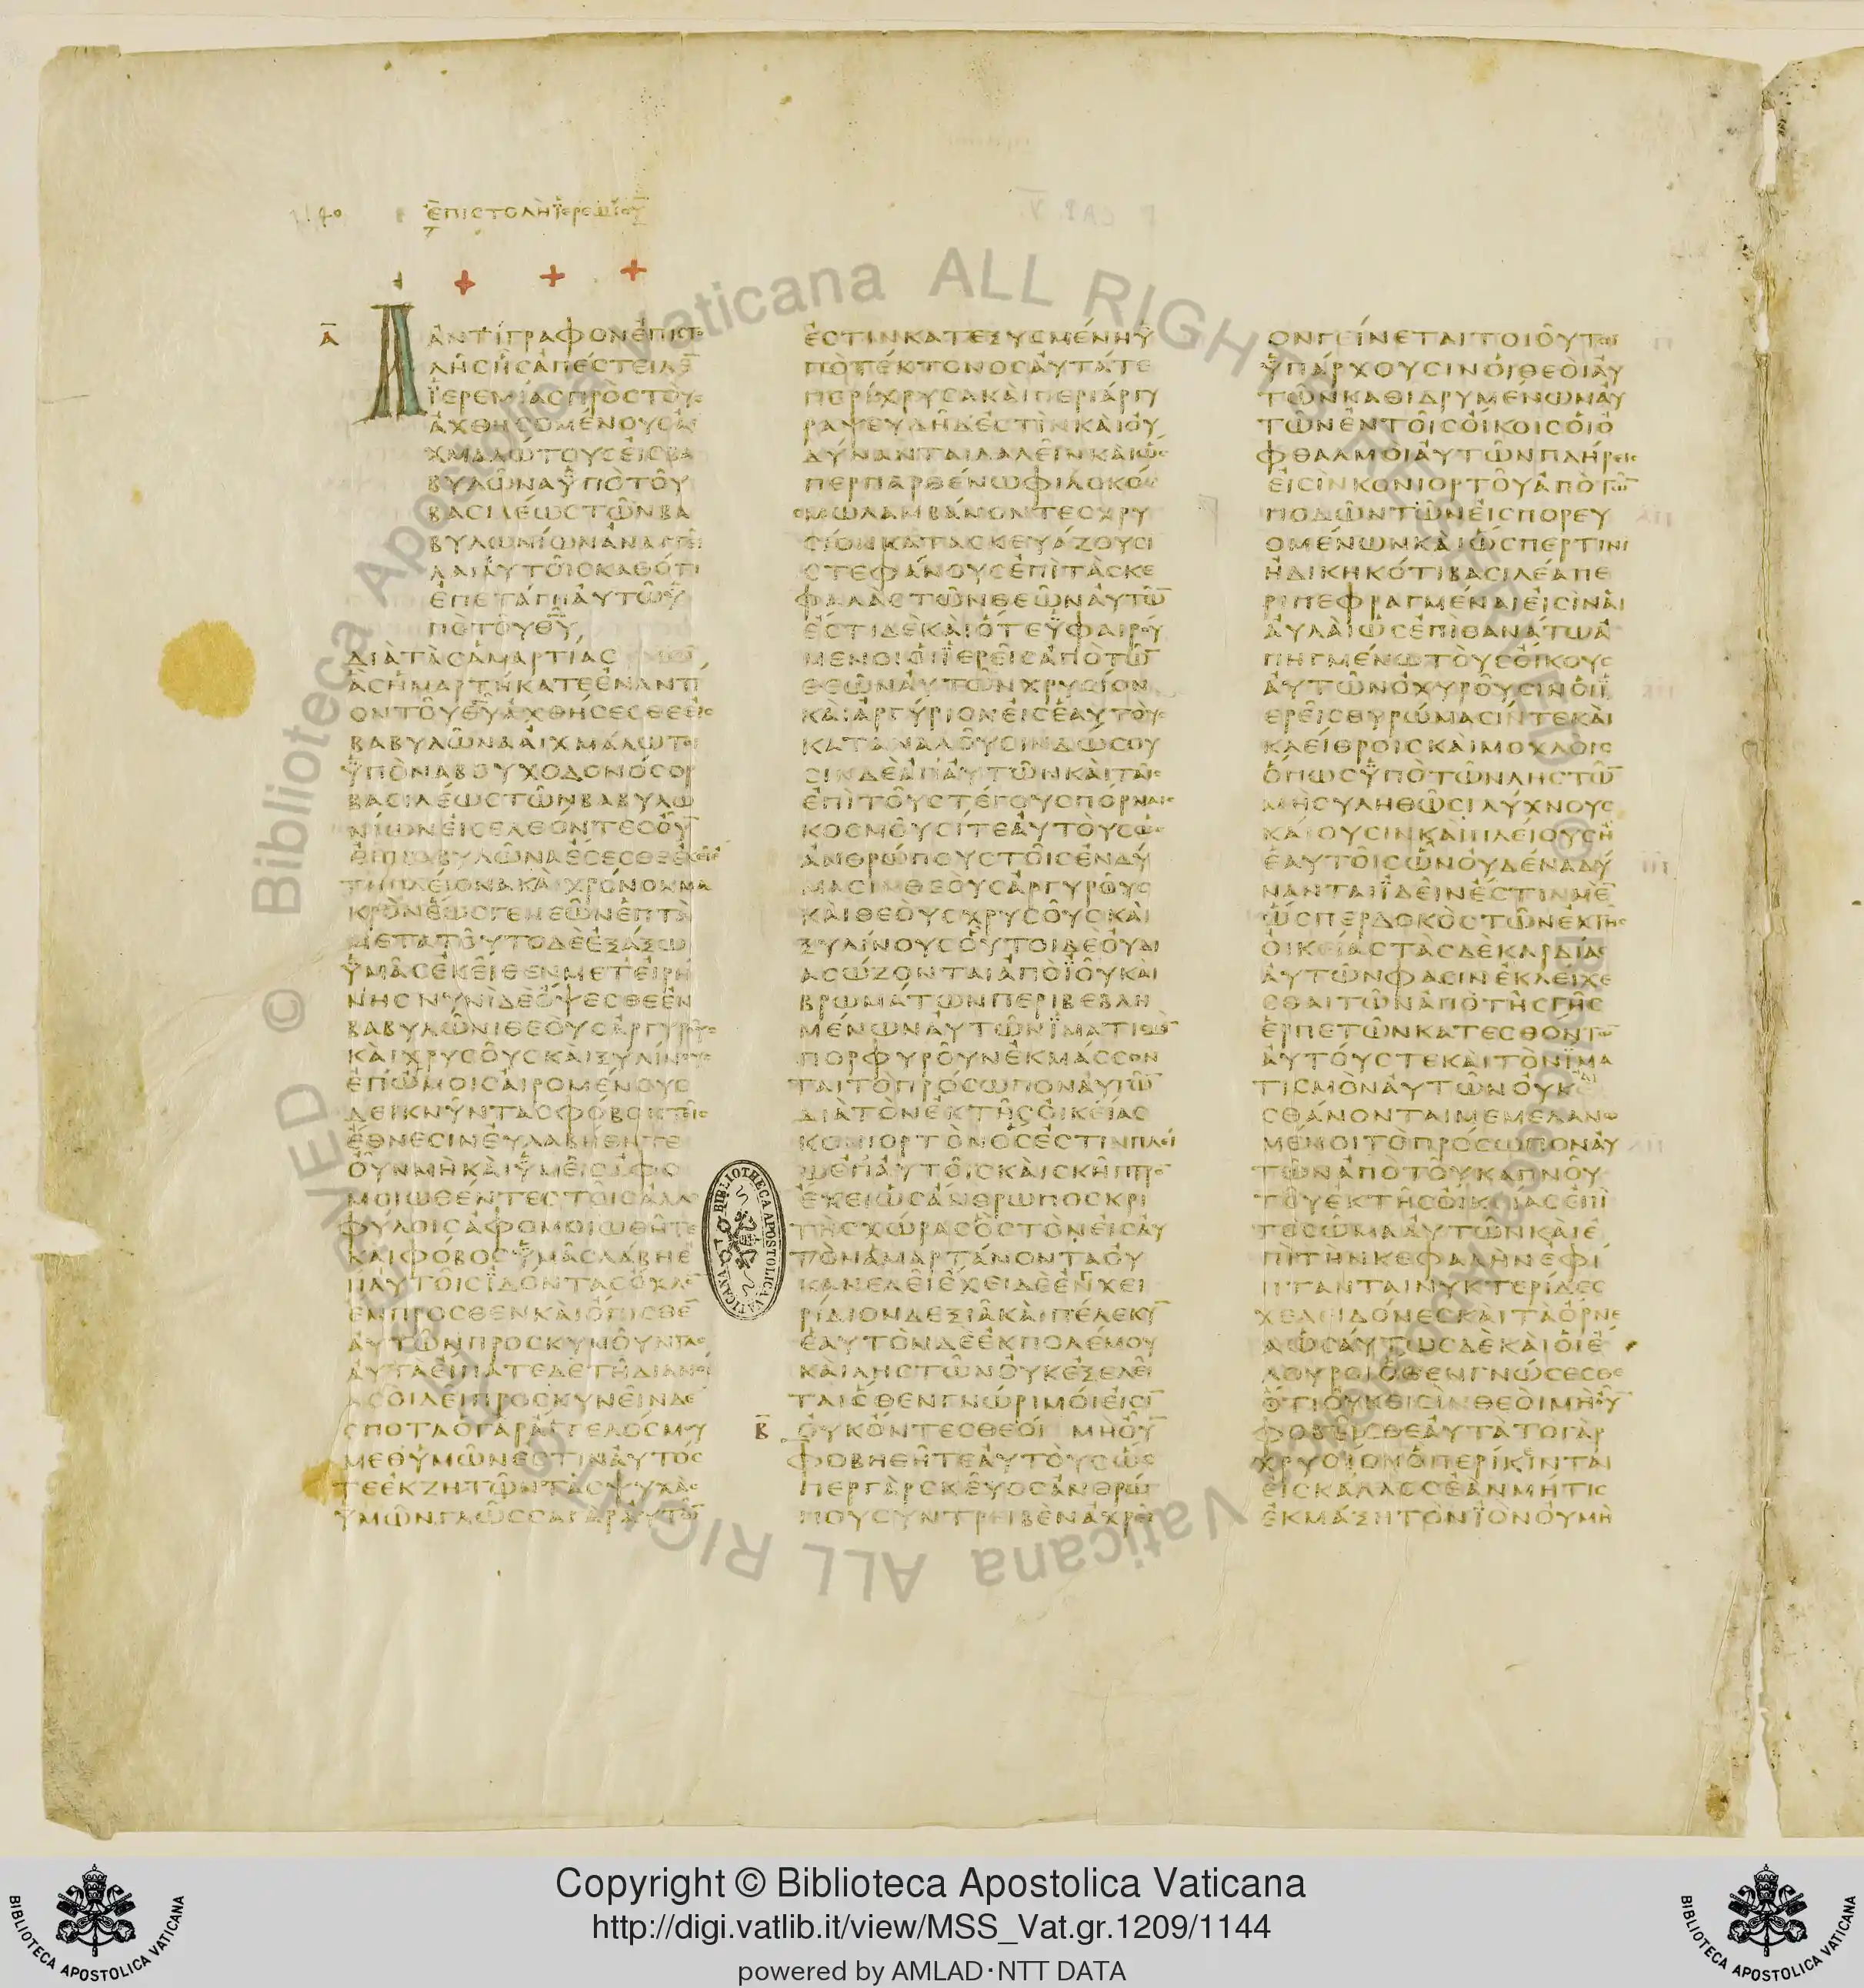 ἐπιστολὴ ϊερεμίου
Α
ΑΝΤΙΓΡΑΦΟΝΕΠΙΣΤΟ
ΛΗΣΗΣΑΠΕΣΤΕΙΛΕ̅
ΪΕΡΕΜΙΑΣΠΡΟΣΤΟΥΣ
ΑΧΘΗΣΟΜΕΝΟΥΣΑΙ
ΧΜΑΛΩΤΟΥΣΕΙΣΒΑ
ΒΥΛΩΝΑΥΠΟΤΟΥ
ΒΑΣΙΛΕΩΣΤΩΝΒΑ
ΒΥΛΩΝΙΩΝΑΝΑΓΓΕΙ
ΛΑΙΑΥΤΟΙΣΚΑΘΟΤΙ
ΕΠΕΤΑΓΗΑΥΤΩΥ
ΠΟΤΟΥΘ̅Υ̅
ΔΙΑΤΑΣΑΜΑΡΤΙΑΣ
ΑΣΗΜΑΡΤΗΚΑΤΕΕΝΑΝΤΙ
ΟΝΤΟΥΘ̅Υ̅ΑΧΘΗΣΕΣΘΕΕΙΣ
ΒΑΒΥΛΩΝΑΑΙΧΜΑΛΩΤΟΙ
ΥΠΟΝΑΒΟΥΧΟΔΟΝΟΣΟΡ
ΒΑΣΙΛΕΩΣΤΩΝΒΑΒΥΛΩ
ΝΙΩΝΕΙΣΕΛΘΟΝΤΕΣΟΥ̅
ΕΙΣΒΑΒΥΛΩΝΑΕΣΕΣΘΕΕΚΕΙ
ΕΤΗΠΛΕΙΟΝΑΚΑΙΧΡΟΝΟΝΜΑ
ΚΡΟΝΕΩΣΓΕΝΕΩΝΕΠΤΑ
ΜΕΤΑΤΟΥΤΟΔΕΕΞΑΞΩ
ΥΜΑΣΕΚΕΙΘΕΝΜΕΤΕΙΡΗ
ΝΗΣΝΥΝΙΔΕΟΨΕΣΘΕΕΝ
ΒΑΒΥΛΩΝΙΘΕΟΥΣΑΡΓΥΡΟΥΣ
ΚΑΙΧΡΥΣΟΥΣΚΑΙΞΥΛΙΝΟΥΣ
ΕΠΩΜΟΙΣΑΙΡΟΜΕΝΟΥΣ
ΔΕΙΚΝΥΝΤΑΣΦΟΒΟΝΤΟΙΣ
ΕΘΝΕΣΙΝΕΥΛΑΒΗΘΗΤΕ
ΟΥΝΜΗΚΑΙΥΜΕΙΣΑΦΟ
ΜΟΙΩΘΕΝΤΕΣΤΟΙΣΑΛΛΟ
ΦΥΛΟΙΣΑΦΟΜΟΙΩΘΗΤΕ
ΚΑΙΦΟΒΟΣΥΜΑΣΛΑΒΗΕ
ΠΑΥΤΟΙΣΪΔΟΝΤΑΣΟΧΛΟ̅
ΕΜΠΡΟΣΘΕΝΚΑΙΟΠΙΣΘΕ̅
ΑΥΤΩΝΠΡΟΣΚΥΝΟΥΝΤΑΣ
ΑΥΤΑΕΙΠΑΤΕΔΕΤΗΔΙΑΝΟΙ
ΑΣΟΙΔΕΙΠΡΟΣΚΥΝΕΙΝΔΕ
ΣΠΟΤΑΟΓΑΡΑΓΓΕΛΟΣΜΟΥ
ΜΕΘΥΜΩΝΕΣΤΙΝΑΥΤΟΣ
ΤΕΕΚΖΗΤΩΝΤΑΣΨΥΧΑΣ
ΥΜΩΝΓΛΩΣΣΑΓΑΡΑΥΤΩ̅
ΕΣΤΙΝΚΑΤΕΞΥΣΜΕΝΗΥ
ΠΟΤΕΚΤΟΝΟΣΑΥΤΑΤΕ
ΠΕΡΙΧΡΥΣΑΚΑΙΠΕΡΙΑΡΓΥ
ΡΑΨΕΥΔΗΔΕΣΤΙΝΚΑΙΟΥ
ΔΥΝΑΝΤΑΙΛΑΛΕΙΝΚΑΙΩΣ
ΠΕΡΠΑΡΘΕΝΩΦΙΛΟΚΟΣ
ΜΩΛΑΜΒΑΝΟΝΤΕΣΧΡΥ
ΣΙΟΝΚΑΤΑΣΚΕΥΑΖΟΥΣΙ
ΣΤΕΦΑΝΟΥΣΕΠΙΤΑΣΚΕ
ΦΑΛΑΣΤΩΝΘΕΩΝΑΥΤΩ̅
ΕΣΤΙΔΕΚΑΙΟΤΕΫΦΑΙΡΟΥ
ΜΕΝΟΙΟΙΪΕΡΕΙΣΑΠΟΤΩ̅
ΘΕΩΝΑΥΤΩΝΧΡΥΣΙΟΝ
ΚΑΙΑΡΓΥΡΙΟΝΕΙΣΕΑΥΤΟΥΣ
ΚΑΤΑΝΑΛΟΥΣΙΝΔΩΣΟΥ
ΣΙΝΔΕΑΠΑΥΤΩΝΚΑΙΤΑΙΣ
ΕΠΙΤΟΥΣΤΕΓΟΥΣΠΟΡΝΑΙΣ
ΚΟΣΜΟΥΣΙΤΕΑΥΤΟΥΣΩΣ
ΑΝΘΡΩΠΟΥΣΤΟΙΣΕΝΔΥ
ΜΑΣΙΝΘΕΟΥΣΑΡΓΥΡΟΥΣ
ΚΑΙΘΕΟΥΣΧΡΥΣΟΥΣΚΑΙ
ΞΥΛΙΝΟΥΣΟΥΤΟΙΔΕΟΥΔΙ
ΑΣΩΖΟΝΤΑΙΑΠΟΪΟΥΚΑΙ
ΒΡΩΜΑΤΩΝΠΕΡΙΒΕΒΛΗ
ΜΕΝΩΝΑΥΤΩΝΪΜΑΤΙΣΜΟ̅
ΠΟΡΦΥΡΟΥΝΕΚΜΑΣΣΟΝ
ΤΑΙΤΟΠΡΟΣΩΠΟΝΑΥΤΩ̅
ΔΙΑΤΟΝΕΚΤΗΣΟΙΚΕΙΑΣ
ΚΟΝΙΟΡΤΟΝΟΣΕΣΤΙΝΠΛΕΙ
ΩΕΠΑΥΤΟΙΣΚΑΙΣΚΗΠΤΡΟ̅
ΕΧΕΙΩΣΑΝΘΡΩΠΟΣΚΡΙ
ΤΗΣΧΩΡΑΣΟΣΤΟΝΕΙΣΑΥ
ΤΟΝΑΜΑΡΤΑΝΟΝΤΑΟΥ
ΚΑΝΕΛΕΙΕΧΕΙΔΕΕΝΧΕΙ
ΡΙΔΙΟΝΔΕΞΙΑΚΑΙΠΕΛΕΚΥ̅
ΕΑΥΤΟΝΔΕΕΚΠΟΛΕΜΟΥ
ΚΑΙΛΗΣΤΩΝΟΥΚΕΞΕΛΕΙ
ΤΑΙΟΘΕΝΓΝΩΡΙΜΟΙΕΙΣΙ̅
Β ΟΥΚΟΝΤΕΣΘΕΟΙ ΜΗΟΥ̅
ΦΟΒΗΘΗΤΕΑΥΤΟΥΣΩΣ
ΠΕΡΓΑΡΣΚΕΥΟΣΑΝΘΡΩ
ΠΟΥΣΥΝΤΡΕΙΒΕΝΑΧΡΕΙ
ΟΝΓΕΙΝΕΤΑΙΤΟΙΟΥΤΟΙ
ΫΠΑΡΧΟΥΣΙΝΟΙΘΕΟΙΑΥ
ΤΩΝΚΑΘΙΔΡΥΜΕΝΩΝΑΥ
ΤΩΝΕΝΤΟΙΣΟΙΚΟΙΣΟΙΟ
ΦΘΑΛΜΟΙΑΥΤΩΝΠΛΗΡΕΙΣ
ΕΙΣΙΝΚΟΝΙΟΡΤΟΥΑΠΟΤΩ̅
ΠΟΔΩΝΤΩΝΕΙΣΠΟΡΕΥ
ΟΜΕΝΩΝΚΑΙΩΣΠΕΡΤΙΝΙ
ΗΔΙΚΗΚΟΤΙΒΑΣΙΛΕΑΠΕ
ΡΙΠΕΦΡΑΓΜΕΝΑΙΕΙΣΙΝΑΙ
ΑΥΛΑΙΩΣΕΠΙΘΑΝΑΤΩΑ
ΠΗΓΜΕΝΩΤΟΥΣΟΙΚΟΥΣ
ΑΥΤΩΝΟΧΥΡΟΥΣΙΝΟΙΪ
ΕΡΕΙΣΘΥΡΩΜΑΣΙΝΤΕΚΑΙ
ΚΛΕΙΘΡΟΙΣΚΑΙΜΟΧΛΟΙΣ
ΟΠΩΣΫΠΟΤΩΝΛΗΣΤΩ̅
ΜΗΣΥΛΗΘΩΣΙΛΥΧΝΟΥΣ
ΚΑΙΟΥΣΙΝΚΑΙΠΛΕΙΟΥΣΗ
ΕΑΥΤΟΙΣΩΝΟΥΔΕΝΑΔΥ
ΝΑΝΤΑΙΪΔΕΙΝΕΣΤΙΝΜΕ̅
ΩΣΠΕΡΔΟΚΟΣΤΩΝΕΚΤΗΣ
ΟΙΚΕΙΑΣΤΑΣΔΕΚΑΡΔΙΑΣ
ΑΥΤΩΝΦΑΣΙΝΕΚΛΕΙΧΕ
ΣΘΑΙΤΩΝΑΠΟΤΗΣΓΗΣ
ΕΡΠΕΤΩΝΚΑΤΕΣΘΟΝΤΩ̅
ΑΥΤΟΥΣΤΕΚΑΙΤΟΝΪΜΑ
ΤΙΣΜΟΝΑΥΤΩΝΟΥΚΑΙ
ΣΘΑΝΟΝΤΑΙΜΕΜΕΛΑΝΩ
ΜΕΝΟΙΤΟΠΡΟΣΩΠΟΝΑΥ
ΤΩΝΑΠΟΤΟΥΚΑΠΝΟΥ
ΤΟΥΕΚΤΗΣΟΙΚΙΑΣΕΠΙ
ΤΟΣΩΜΑΑΥΤΩΝΚΑΙΕ
ΠΙΤΗΝΚΕΦΑΛΗΝΕΦΙ
ΠΤΑΝΤΑΙΝΥΚΤΕΡΙΔΕΣ
ΧΕΛΕΙΔΟΝΕΣΚΑΙΤΑΟΡΝΕ
ΑΩΣΑΥΤΩΣΔΕΚΑΙΟΙΕ
ΛΟΥΡΟΙΟΘΕΝΓΝΩΣΕΣΘΕ
ΟΤΙΟΥΚΕΙΣΙΝΘΕΟΙΜΗΟΥ̅
ΦΟΒΕΙΣΘΕΑΥΤΑΤΟΓΑΡ
ΧΡΥΣΙΟΝΟΠΕΡΙΚΕΙΝΤΑΙ
ΕΙΣΚΑΛΛΟΣΕΑΝΜΗΤΙΣ
ΕΚΜΑΞΗΤΟΝΪΟΝΟΥΜΗ
BIBLIOTHECA APOSTOLICA VATICANA
© Biblioteca Apostolica Vaticana ALL RIGHTS RESERVED
Copyright © Biblioteca Apostolica Vaticana
http://digi.vatlib.it/view/MSS_Vat.gr.1209/1144
powered by AMLAD·NTT DATA
BIBLIOTECA APOSTOLICA VATICANA
BIBLIOTECA APOSTOLICA VATICANA